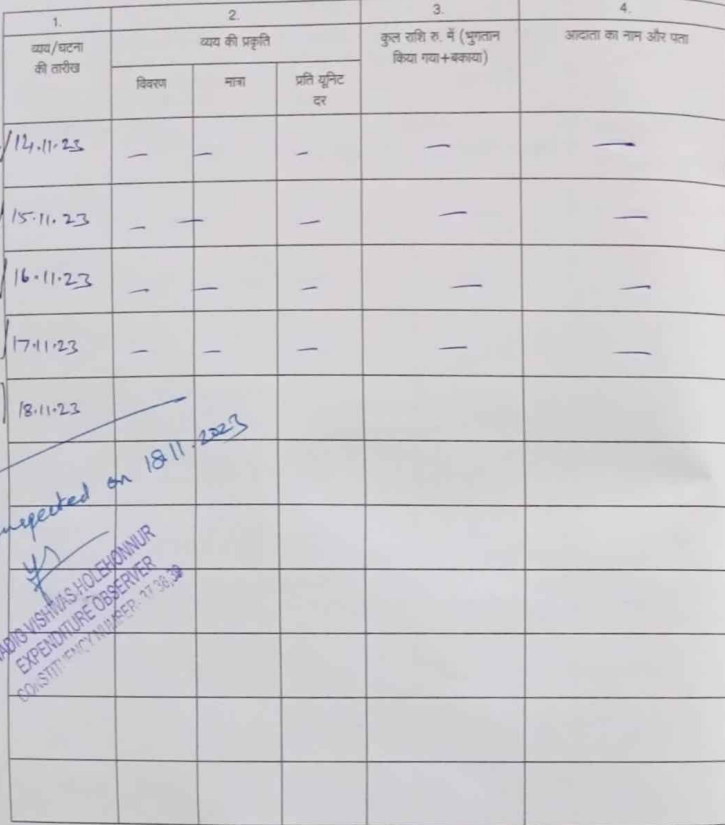 1. 2. 3. 4.
व्यय/घटना की तारीख व्यय की प्रकृति कुल राशि रु. में (भुगतान किया गया+बकाया) आदाता का नाम और पता
विवरण मात्रा प्रति यूनिट दर
14.11.23 — — — — —
15.11.23 — — — — —
16.11.23 — — — — —
17.11.23 — — — — —
18.11.23
on 18.11.2023
VISHWAS HOLEHONNUR
EXPENDITURE OBSERVER
CONSTITUENCY NUMBER: 37,38,39